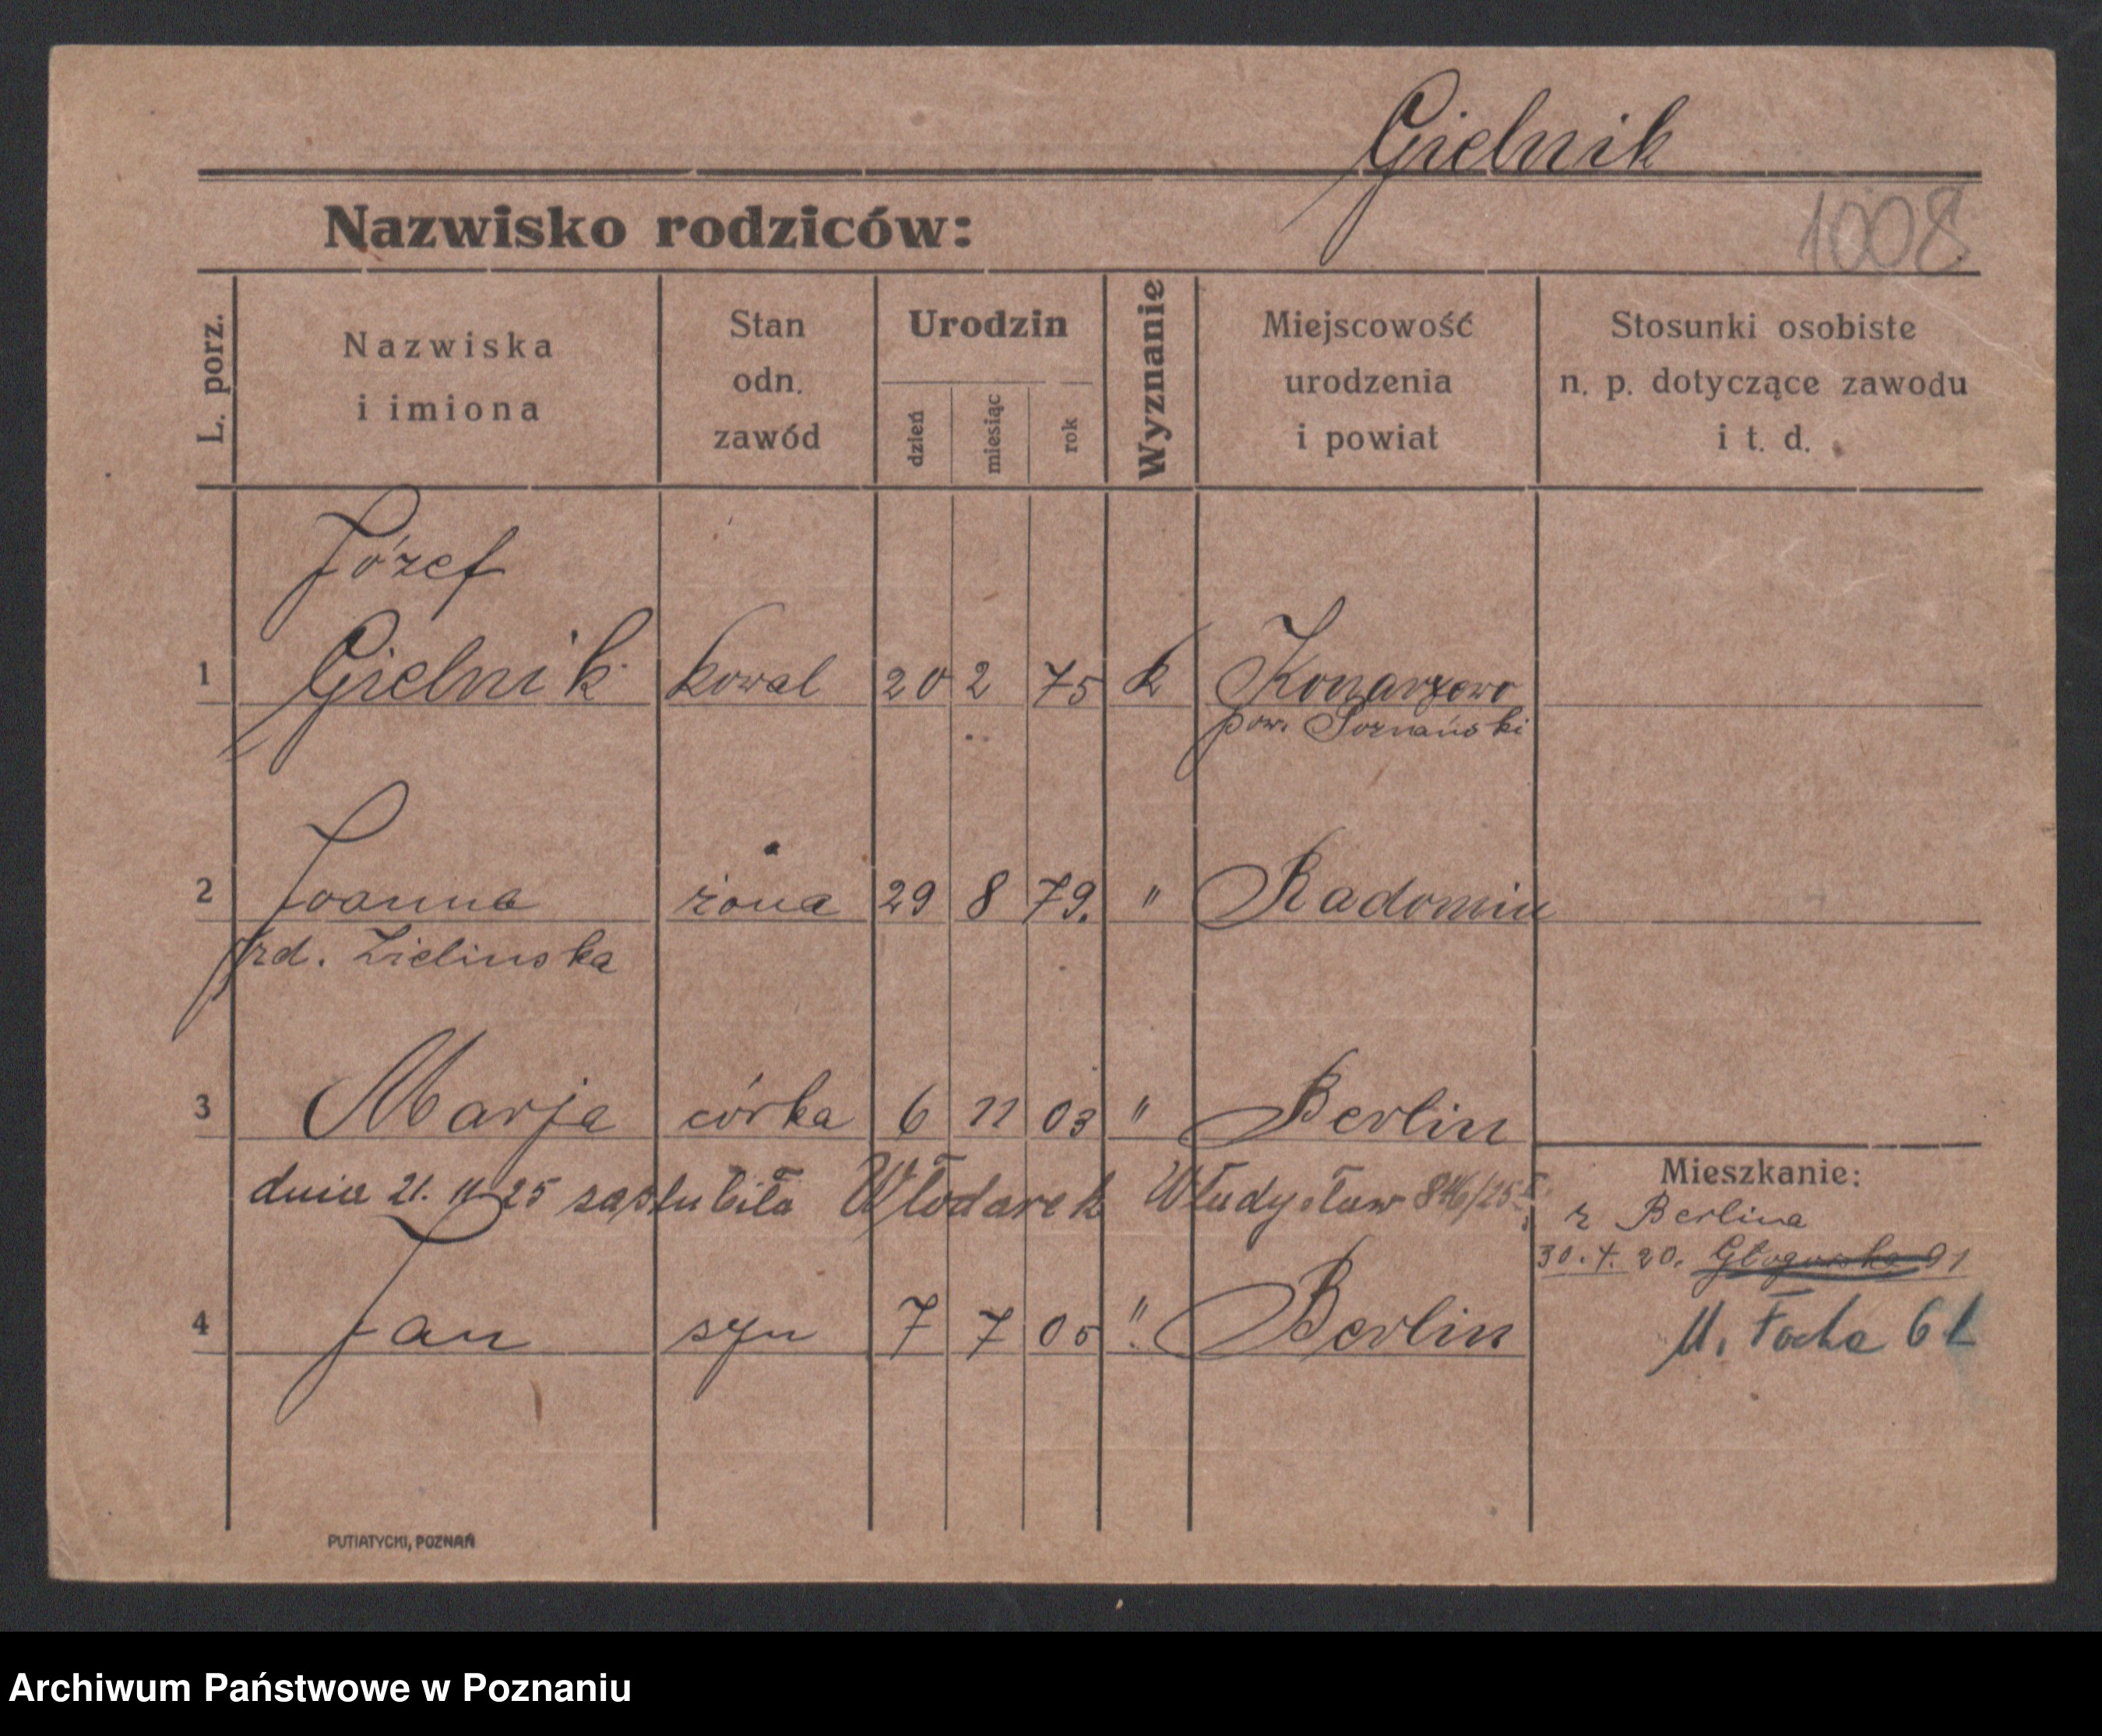 Gielnik
Nazwisko rodziców:
1008
L. porz.
Nazwiska
i imiona
Stan
odn.
zawód
Urodzin
dzień
miesiąc
rok
Wyznanie
Miejscowość
urodzenia
i powiat
Stosunki osobiste
n. p. dotyczące zawodu
i t. d.
Józef
1 Gielnik kowal 20 2 75 k Konarzewo
pow. Poznański
2 Joanna żona 29 8 79. " Radomin
rd. Zielinska
3 Marja córka 6 11 03 " Berlin
dnia 21. 11 25 zaślubiła Włodarek Władysław 846/25
4 Jan syn 7 7 05 " Berlin
Mieszkanie:
z Berlina
30. 4. 20. Głogowska 91
M. Focha 61
PUTIATYCKI, POZNAŃ
Archiwum Państwowe w Poznaniu